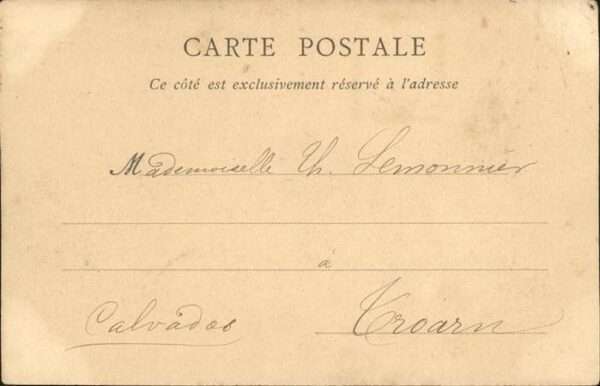 CARTE POSTALE
Ce côté est exclusivement réservé à l'adresse
Mademoiselle Th. Lemonnier
à
Calvados Troarn